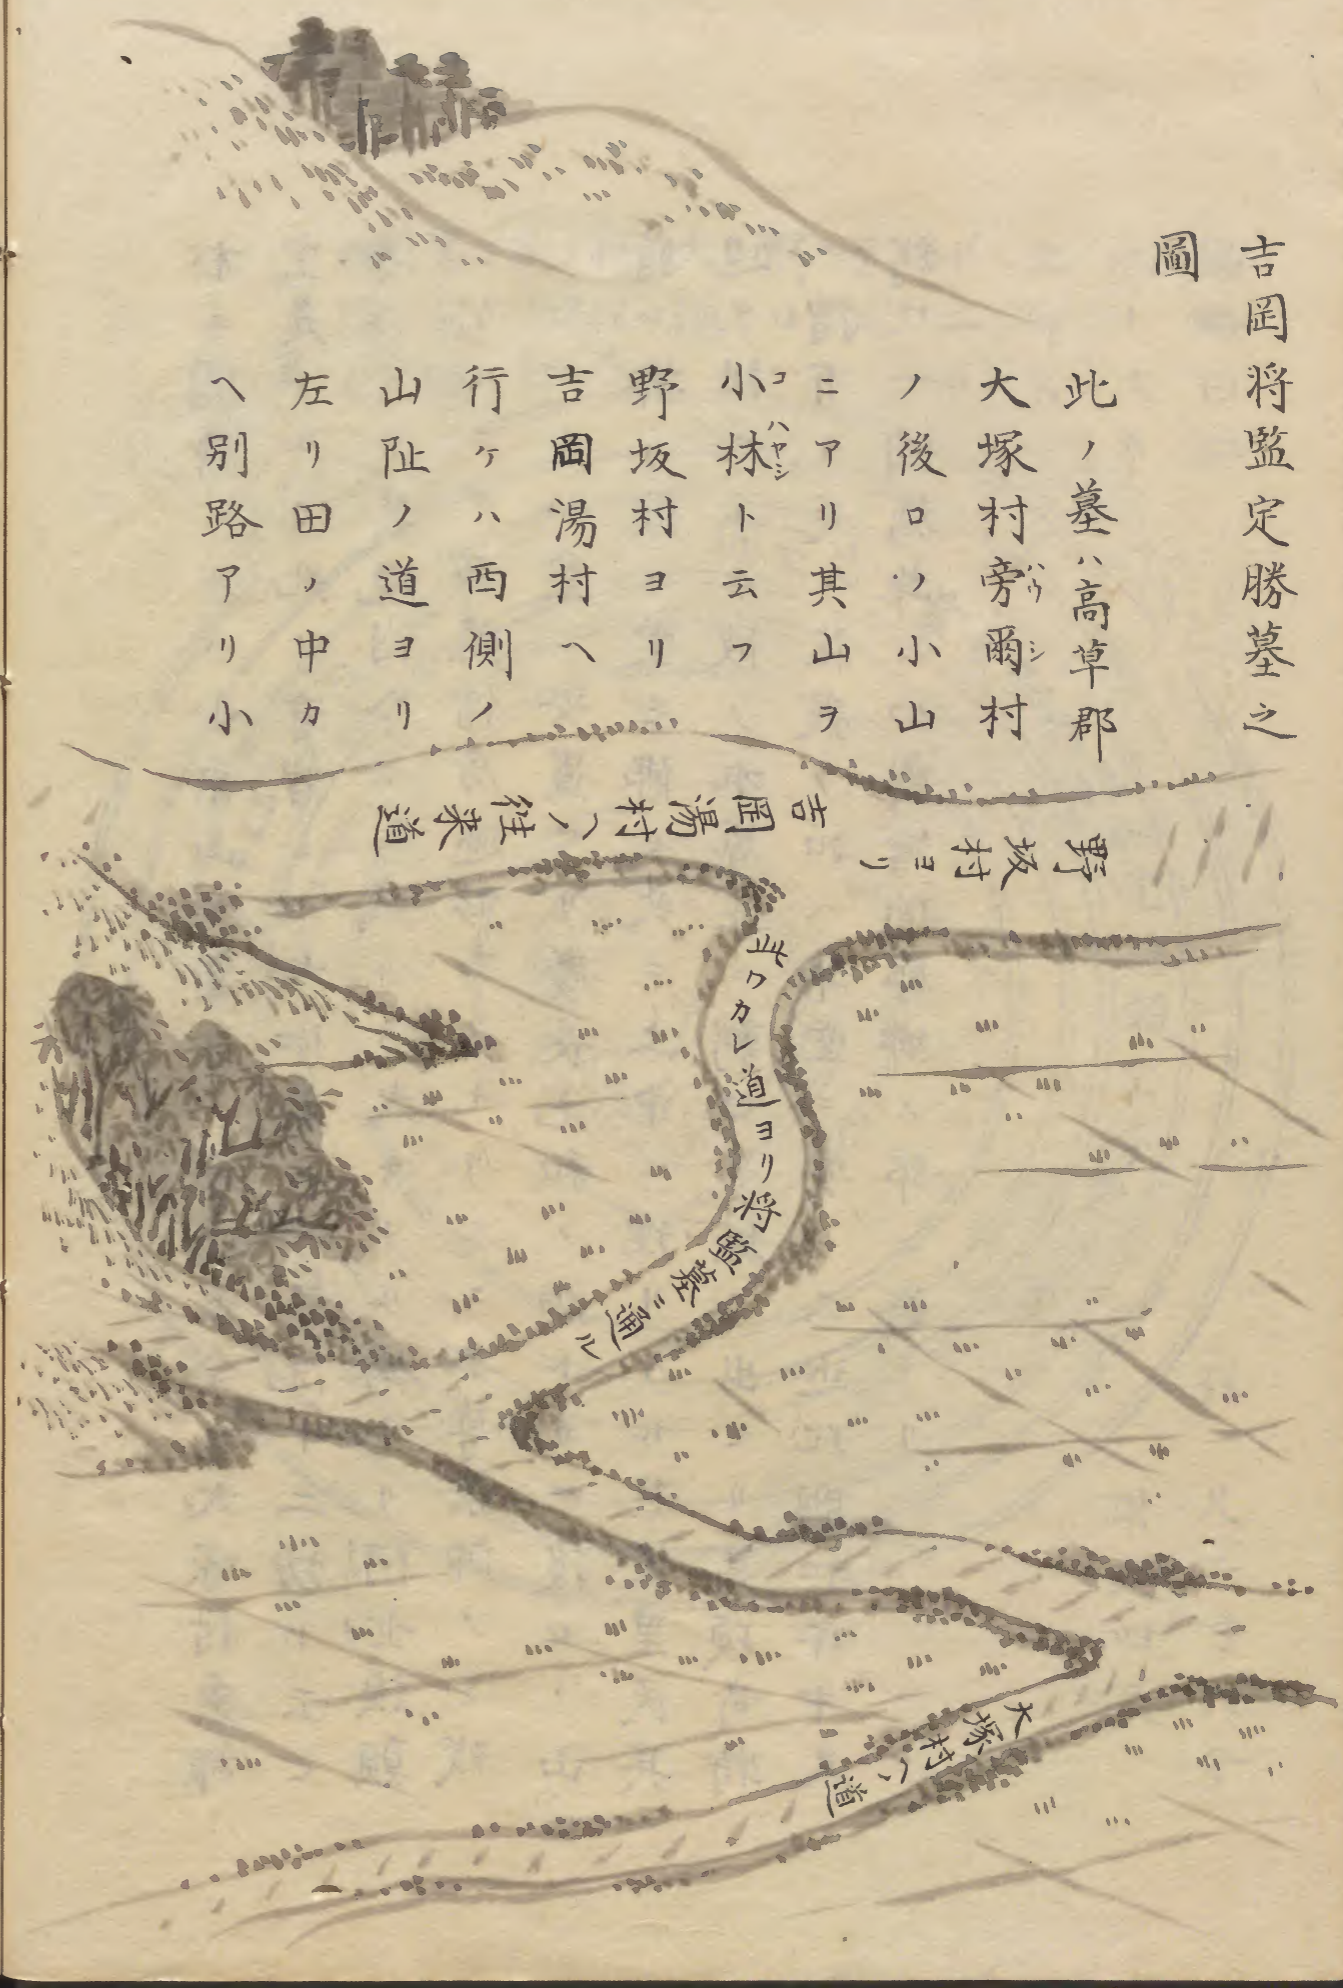 吉岡将監定勝墓之
圖
此ノ墓ハ高草郡
大塚村旁爾村
ハウ
シ
ノ後ロノ小山
ニアリ其山ヲ
小林ト云フ
コ
ハヤシ
野坂村ヨリ
吉岡湯村ヘ
行ケハ西側ノ
山阯ノ道ヨリ
左リ田ノ中カ
ヘ別路アリ小
野坂村ヨリ
吉岡湯村ヘノ往来道
此ワカレ道ヨリ将監墓ニ通ル
大塚村ヘノ道